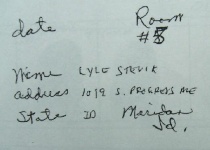 Room
date #5
Name LYLE STEVIK
address 1019 S. PROGRESS AVE
State ID Meridian
Id.